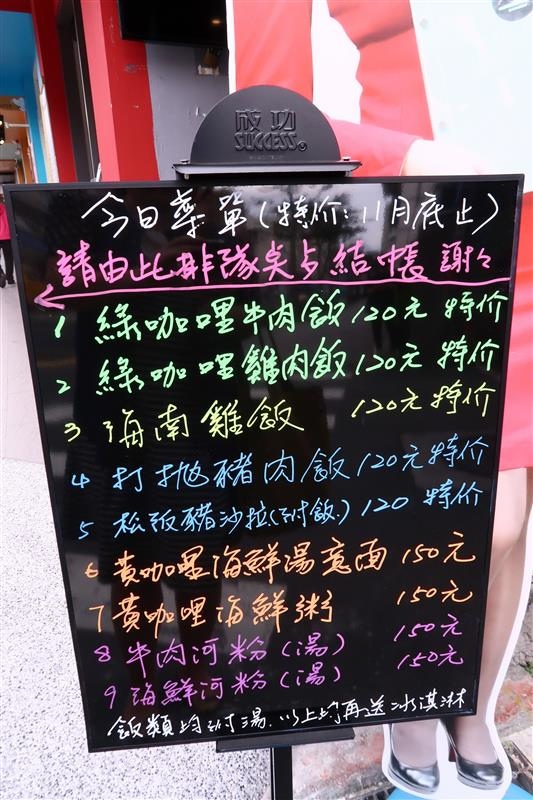 成功
SUCCESS
今日菜單(特价:11月底止)
請由此排隊先点結帳 謝々
1 綠咖哩牛肉飯120元 特价
2 綠咖哩雞肉飯120元 特价
3 海南雞飯 120元特价
4 打拋豬肉飯120元特价
5 松阪豬沙拉(附飯)120 特价
6 黃咖哩海鮮湯意面 150元
7 黃咖哩海鮮粥 150元
8 牛肉河粉(湯) 150元
9 海鮮河粉(湯) 150元
飯類均附湯.以上均再送冰淇淋